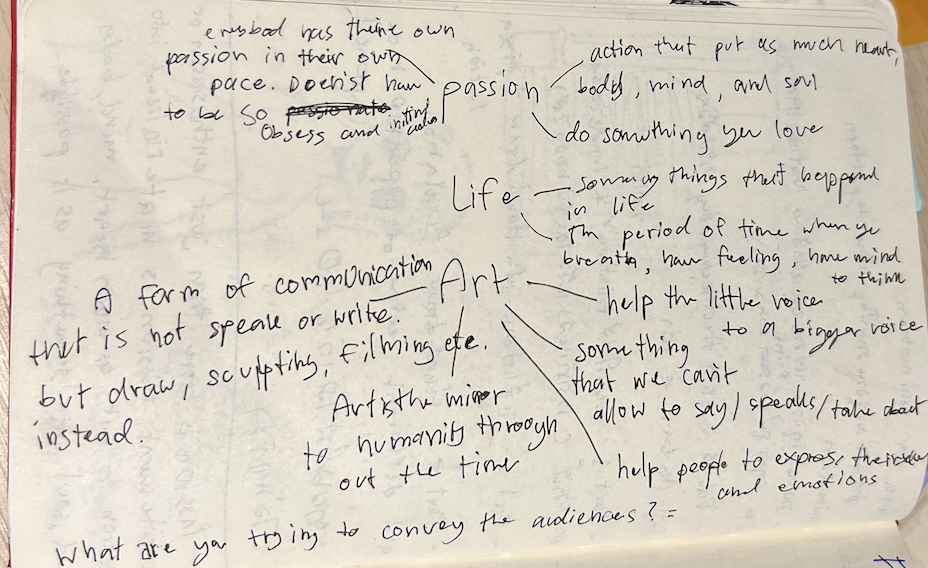 has their own
passion in their own
pace. Doesnt have
to be so passionate
Obsess and
passion
action that put as much heart,
body, mind, and soul
do something you love
Life
things that happend
in life
The period of time when you
breath, have feeling, have mind
to think
Art
A form of communication
that is not speak or write.
but draw, sculpting, filming etc.
instead.
Art is the mirror
to humanity through
out the time
help the little voice
to a bigger voice
something
that we can't
allow to say/speak/take about
help people to express their
and emotions
What are you trying to convey the audiences? =